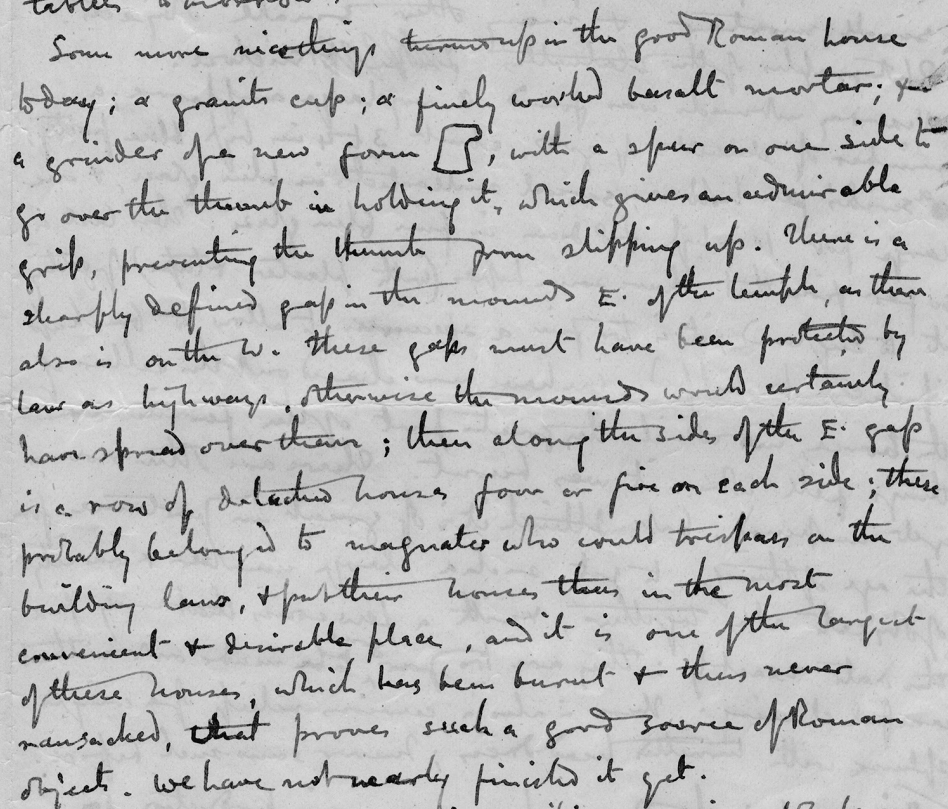 Some more nice things turned up in the good Roman house
today; a granite cup; a finely worked basalt mortar; &
a grinder of a new form , with a spur on one side to
go over the thumb in holding it, which gives an admirable
grip, preventing the thumb from slipping up. There is a
sharply defined gap in the mounds E. of the temple, as there
also is on the W. These gaps must have been protected by
law as highways, otherwise the mounds would certainly
have spread over them; then along the sides of the E. gap
is a row of detached houses four or five on each side; these
probably belonged to magnates who could trespass on the
building laws, & put their houses thus in the most
convenient & desirable place, and it is one of the largest
of these houses, which has been burnt & thus never
ransacked, that proves such a good source of Roman
objects. We have not nearly finished it yet.